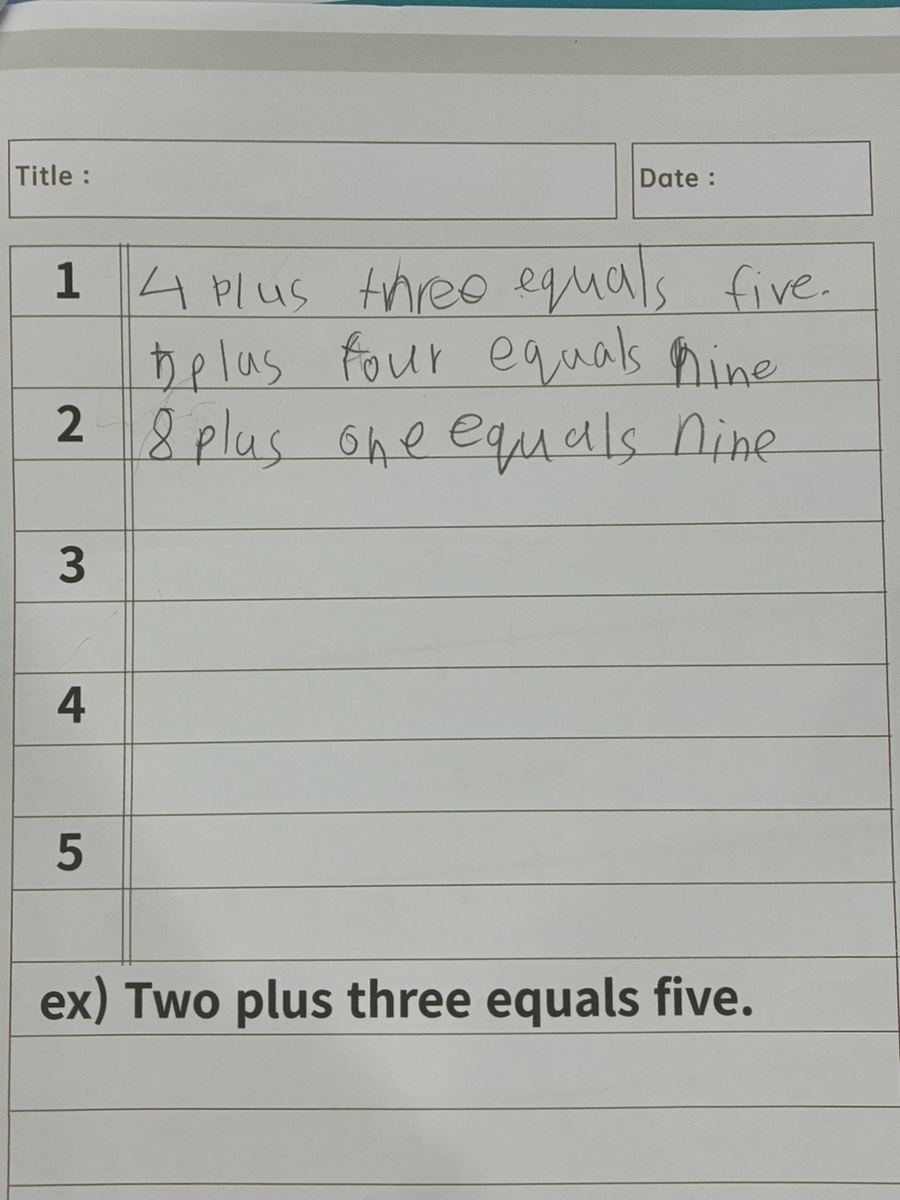 Title :
Date :
1 4 plus three equals five.
5 plus four equals nine
2 8 plus one equals nine
3
4
5
ex) Two plus three equals five.